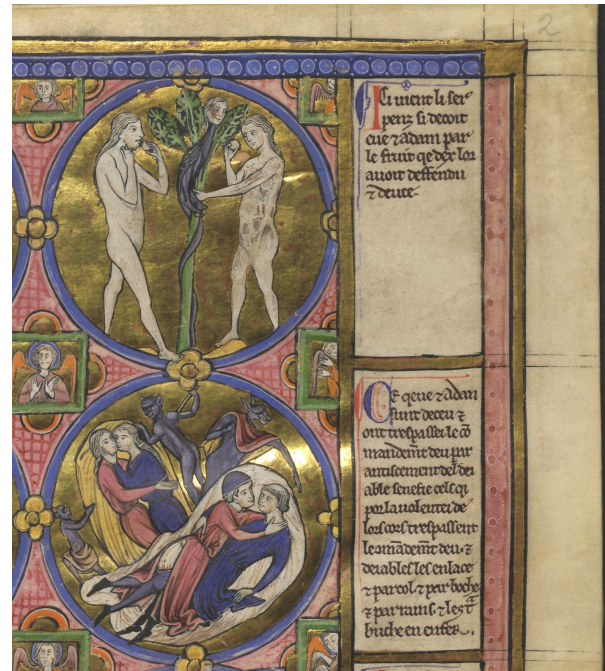 2
Ci vient li ser
penz si decoit
eve ⁊ adam par
le fruit qe dex lor
avoit deffendu
⁊ deuee.
Ce qeve ⁊ adan
sunt deceu ⁊
ont trespasse le cō
mandemt deu par
antiscement del dei
able senefie cels qi
por la volentei de
lor cors trespassent
le mādemt deu. ⁊
deiables les enlace
⁊ par col ⁊ par boche
⁊ par rains ⁊ les t
buche en enfer.